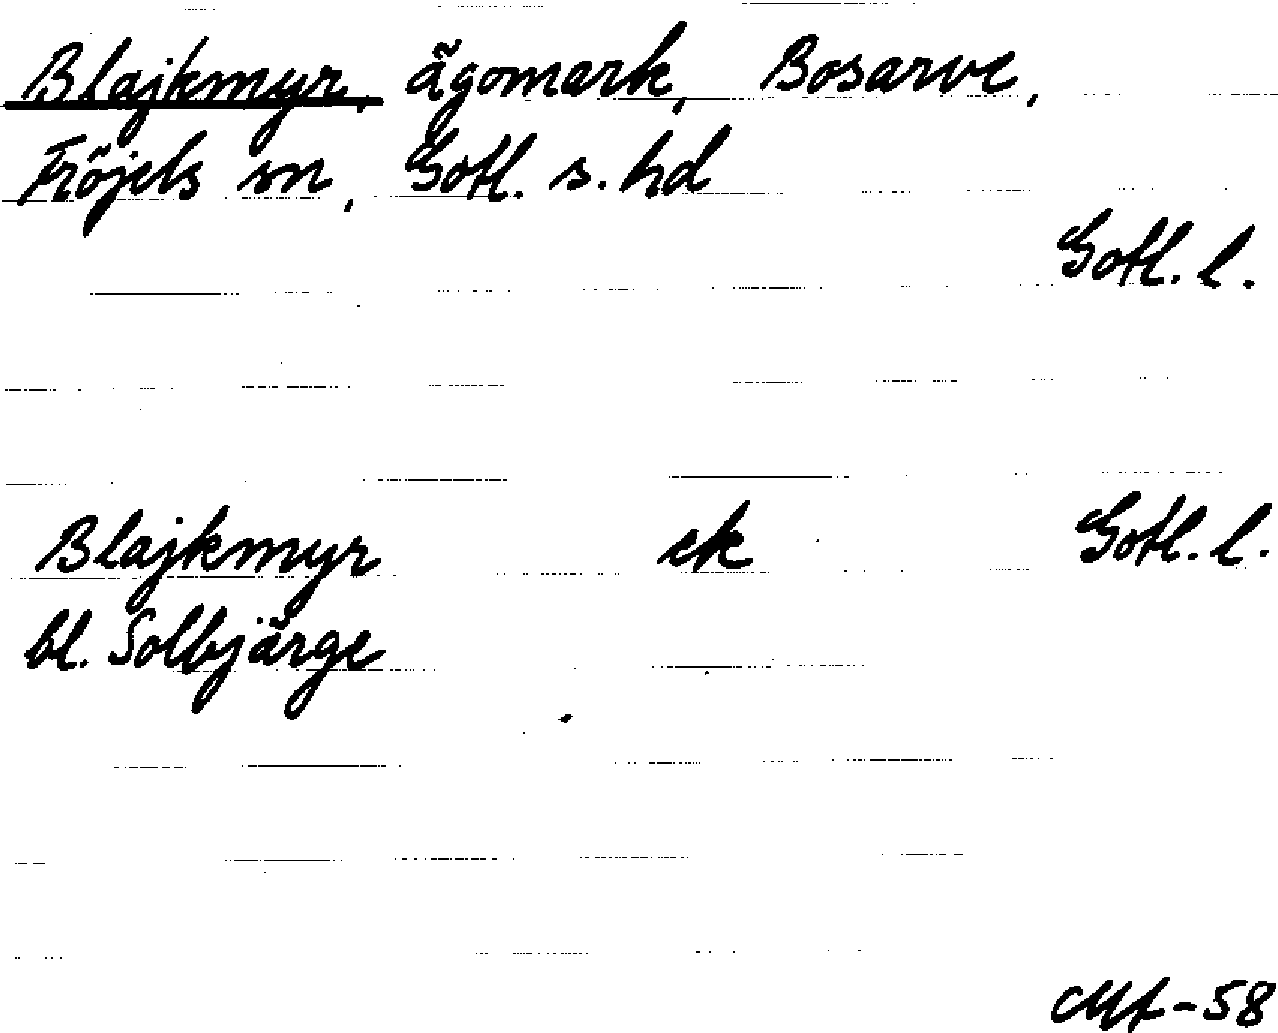 Blajkmyr, ägomark, Bosarve,
Fröjels sn, Gotl. s. hd
Gotl. l.
Blajkmyr ek Gotl. l.
bl. Solbjärge
-58